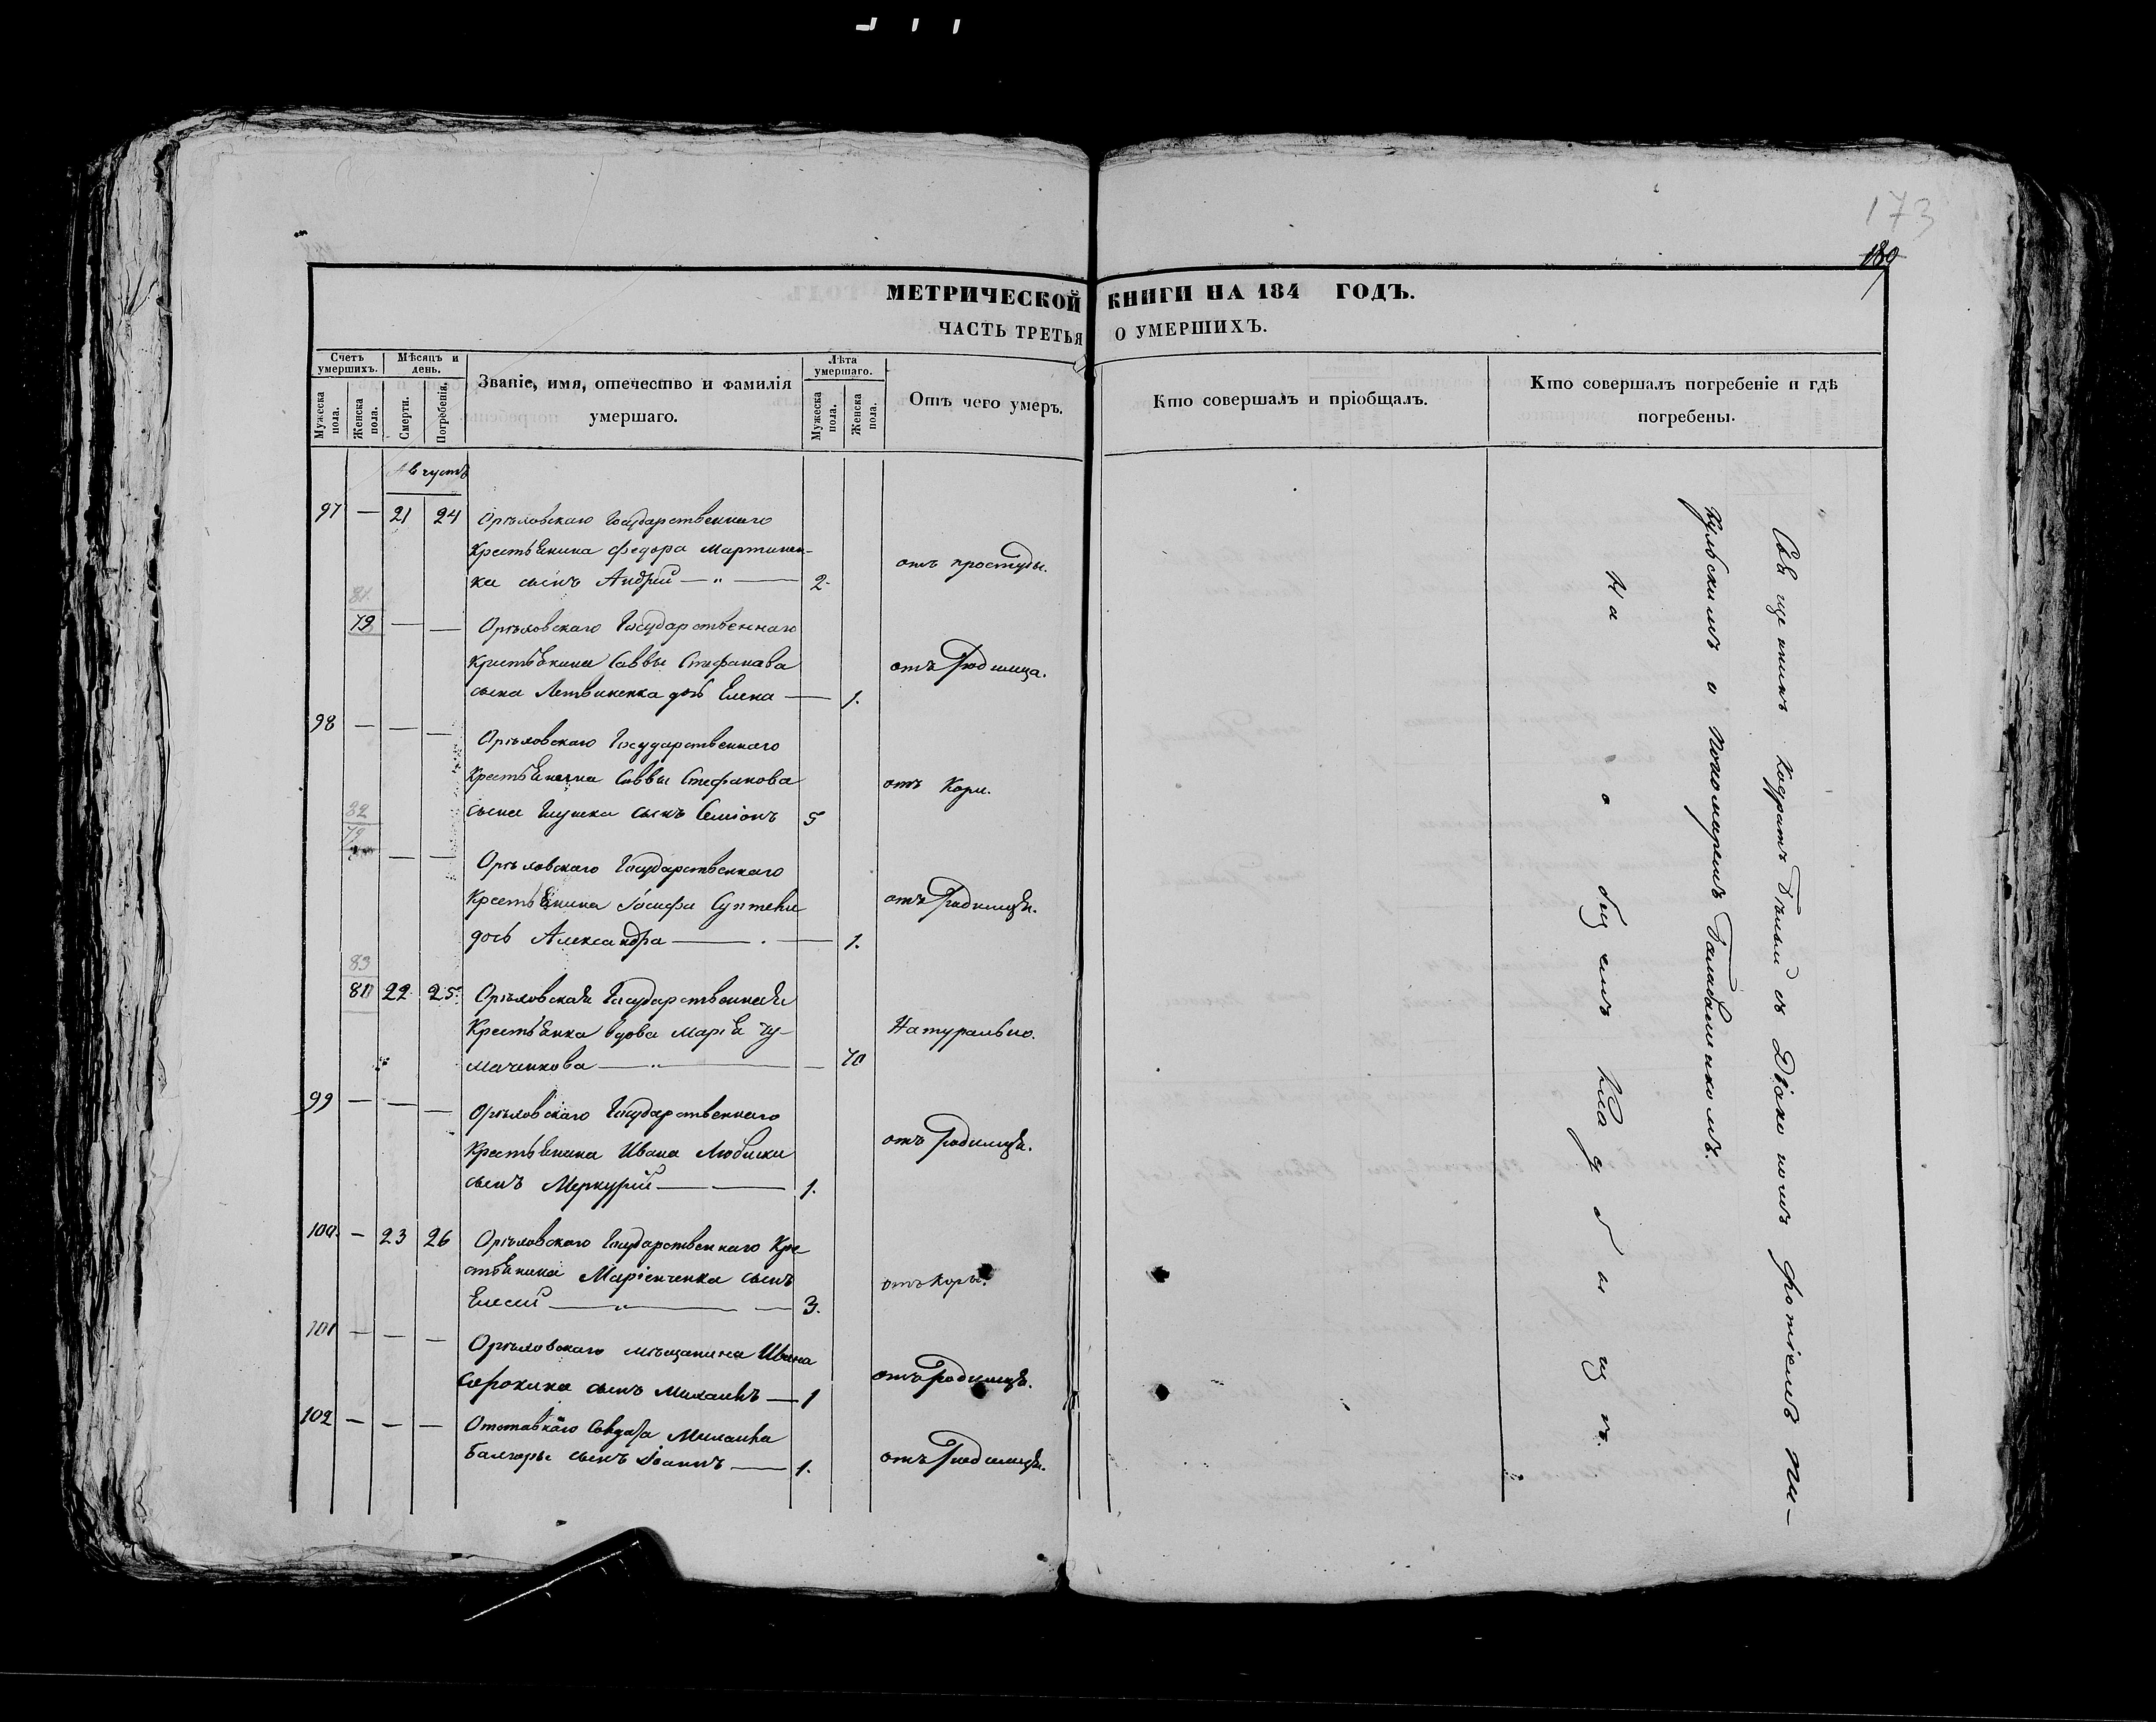 173
189
МЕТРИЧЕСКОЙ КНИГИ НА 184 ГОДЪ.
ЧАСТЬ ТРЕТЬЯ О УМЕРШИХЪ.
Счетъ умершихъ.
Мужеска пола.
Женска пола.
Мѣсяцъ и день.
Смерти.
Погребенія.
Званіе, имя, отечество и фамилія умершаго.
Лѣта умершаго.
Мужеска пола.
Женска пола.
Отъ чего умеръ.
Кто совершалъ и пріобщалъ.
Кто совершалъ погребеніе и гдѣ погребены.
Августъ
97 — 21 24 Орѣловскаго Государственнаго
Крестьянина Федора Мартинен-
ка сынъ Андрій — 2. отъ простуды.
81
79 — — Орѣловскаго Государственнаго
Крестьянина Саввы Стефанова
сына Летвиненка дочь Елена — 1. отъ Родимца.
98 — — — Орѣловскаго Государственнаго
Крестьянина Саввы Стефанова
сына сынъ Семіонъ 5 отъ Кори.
82
79
— — Орѣловскаго Государственнаго
Крестьянина Іосифа
дочь Александра — 1. отъ Родимця.
83
80 22 25. Орѣловская Государственная
Крестьянка вдова Марія Чу-
маченкова — 70 Натурально.
99 — — — Орѣловскаго Государственнаго
Крестьянина Ивана
сынъ Меркурій — 1. отъ Родимця.
100. — 23 26 Орѣловскаго Государственнаго Кре
стьянина Маріенченка сынъ
Елесій — 3. отъ Коры.
101 — — — Орѣловскаго мѣщанина Ивана
Сорокина сынъ Михаилъ — 1 отъ Родимця.
102 — — — Отставнаго Солдата Михаила
сынъ Іоаннъ — 1. отъ Родимця.
Священникъ Кодратъ Бѣлый съ Діакономъ Фотіемъ
и Пономаремъ
На общемъ Кладбищѣ.